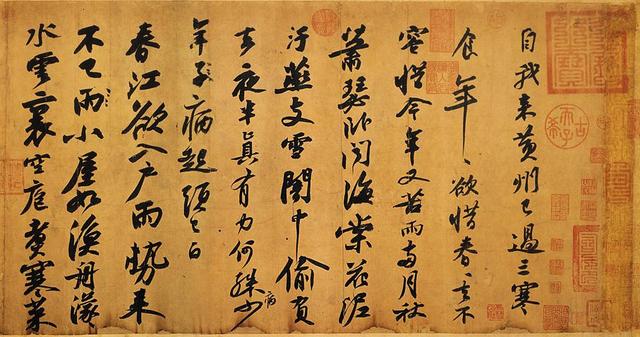 自我來黃州已過三寒
食年〻欲惜春〻去不
容惜今年又苦雨兩月秋
蕭瑟臥聞海棠花泥
汙燕支雪闇中偷負
去夜半真有力何殊病少
年子病起頭已白
春江欲入戶雨勢來
不已雨小屋如漁舟濛〻
水雲裏空庖煮寒菜
古希天子